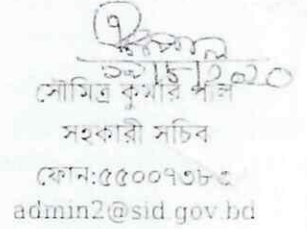 সৌমিত্র কুমার পাল
সহকারী সচিব
ফোন:৫৫০০৭৩৮৫
admin2@sid.gov.bd